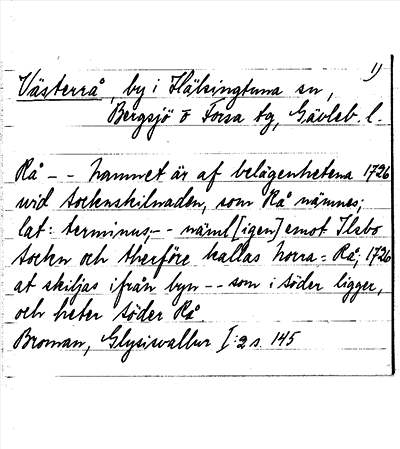 1)
Västerrå, by i Hälsingtuna sn,
Bergsjö o Forsa tg, Gävleb. l.
Rå - - hamnet är af belägenhetena 1726
wid sockenskilnaden, som Rå nämnes;
lat: terminus,- - nämi[igen] emot Ilsbo
sockn och therföre kallas norra = Rå; 1726
at skiljas ifrån byn - - som i söder ligger,
och heter söder Rå.
Broman, Glysisvallur I:2 s. 145